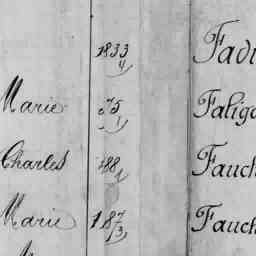 1833 Fadi
4
Marie 75 Falig
1
Charles 188 Fauch
1
Marie 187 Fauch
3